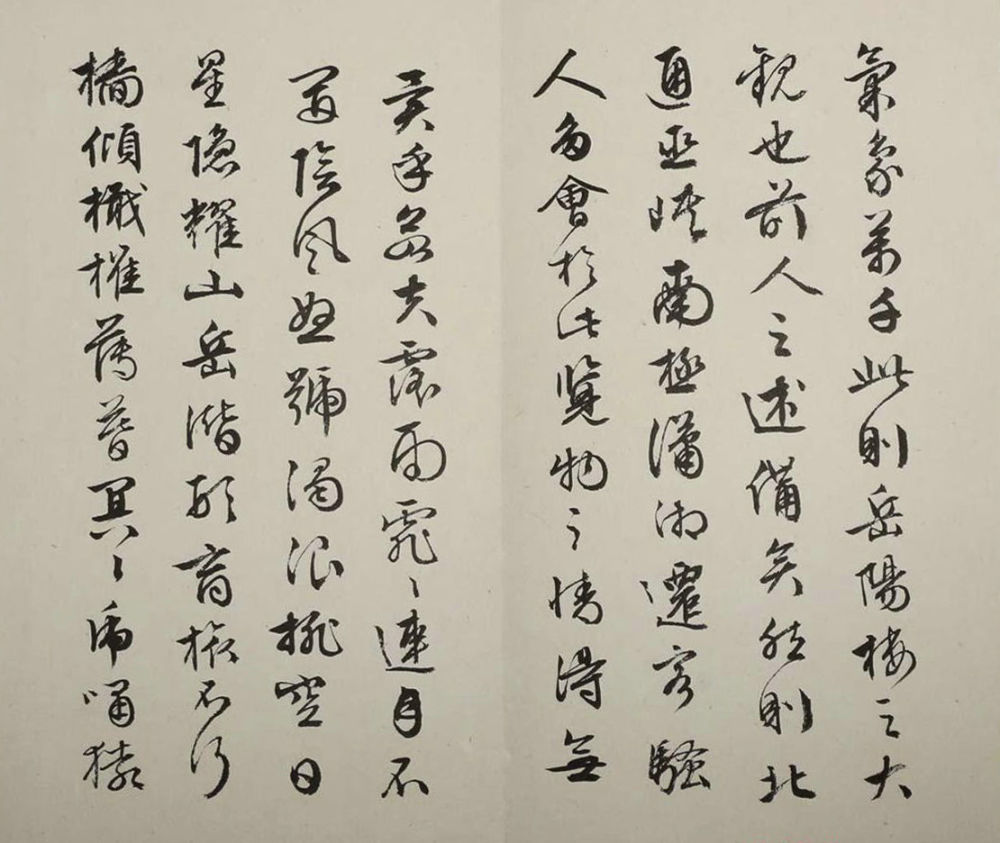 氣象萬千此則岳陽樓之大
觀也前人之述備矣然則北
通巫峽南極瀟湘遷客騷
人多會於此覽物之情得無
異乎若夫霪雨霏〻連月不
開陰風怒號濁浪排空日
星隱耀山岳潛形商旅不行
檣傾檝摧薄暮冥〻虎嘯猿